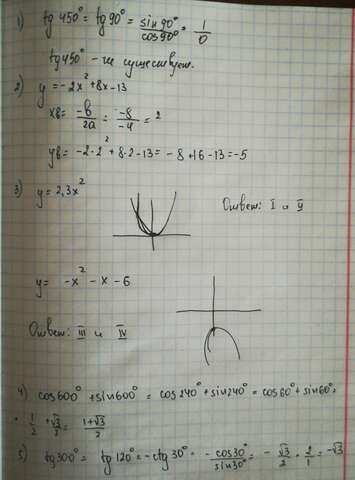 1) tg 450° = tg 90° = sin 90° / cos 90° = 1/0
tg 450° - не существует.
2) y = -2x² + 8x - 13
xв = -в/2a = -8/-4 = 2
yв = -2·2² + 8·2 - 13 = -8 + 16 - 13 = -5
3) y = 2,3x²
Ответ: I и II
y = -x² - x - 6
Ответ: III и IV
4) cos 600° + sin 600° = cos 240° + sin 240° = cos 60° + sin 60° =
= 1/2 + √3/2 = 1+√3/2
5) tg 300° = tg 120° = -ctg 30° = - cos 30° / sin 30° = - √3/2 · 2/1 = -√3